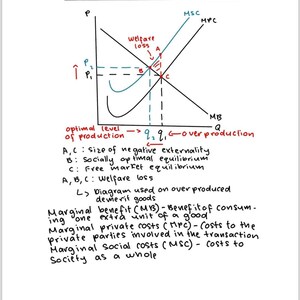 P
MSC
MPC
Welfare
loss
A
P2
B
P1
C
MB
Q
optimal level
of production
q2 q1
overproduction
A, C : Size of negative externality
B: Socially optimal equilibrium
C : Free market equilibrium
A, B, C : Welfare loss
Diagram used on over produced
demerit goods
Marginal benefit (MB) - Benefit of consum-
ing one extra unit of a good
Marginal private costs (MPC) - Costs to the
private parties involved in the transaction
Marginal Social costs (MSC) - Costs to
Society as a whole